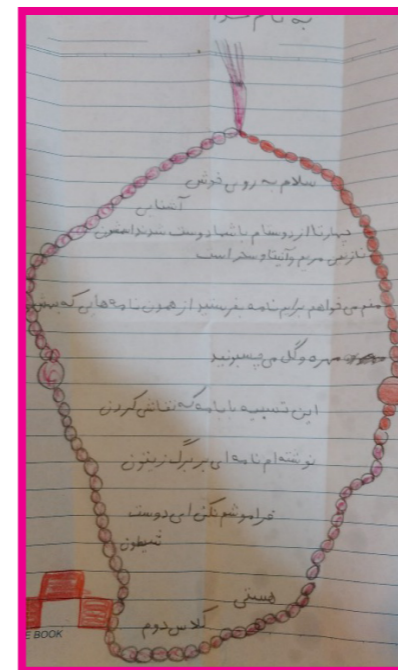 به نام خدا
سلام به روی خوش
آشنایی
چهارتا از دوستام با شما دوست شدند اسمشون
نازنین مریم و آنیتا و سحر است
منم می‌خواهم برایم نامه بفرستید از همون نامه هایی که بهش
مهره و گل می‌چسبونید
این تسبیح بابامه که نقاشی کردن
نوشته‌ام نامه ای بر برگ زیتون
فراموشم نکن ای دوست
شیطون
هستی
کلاس دوم
E BOOK